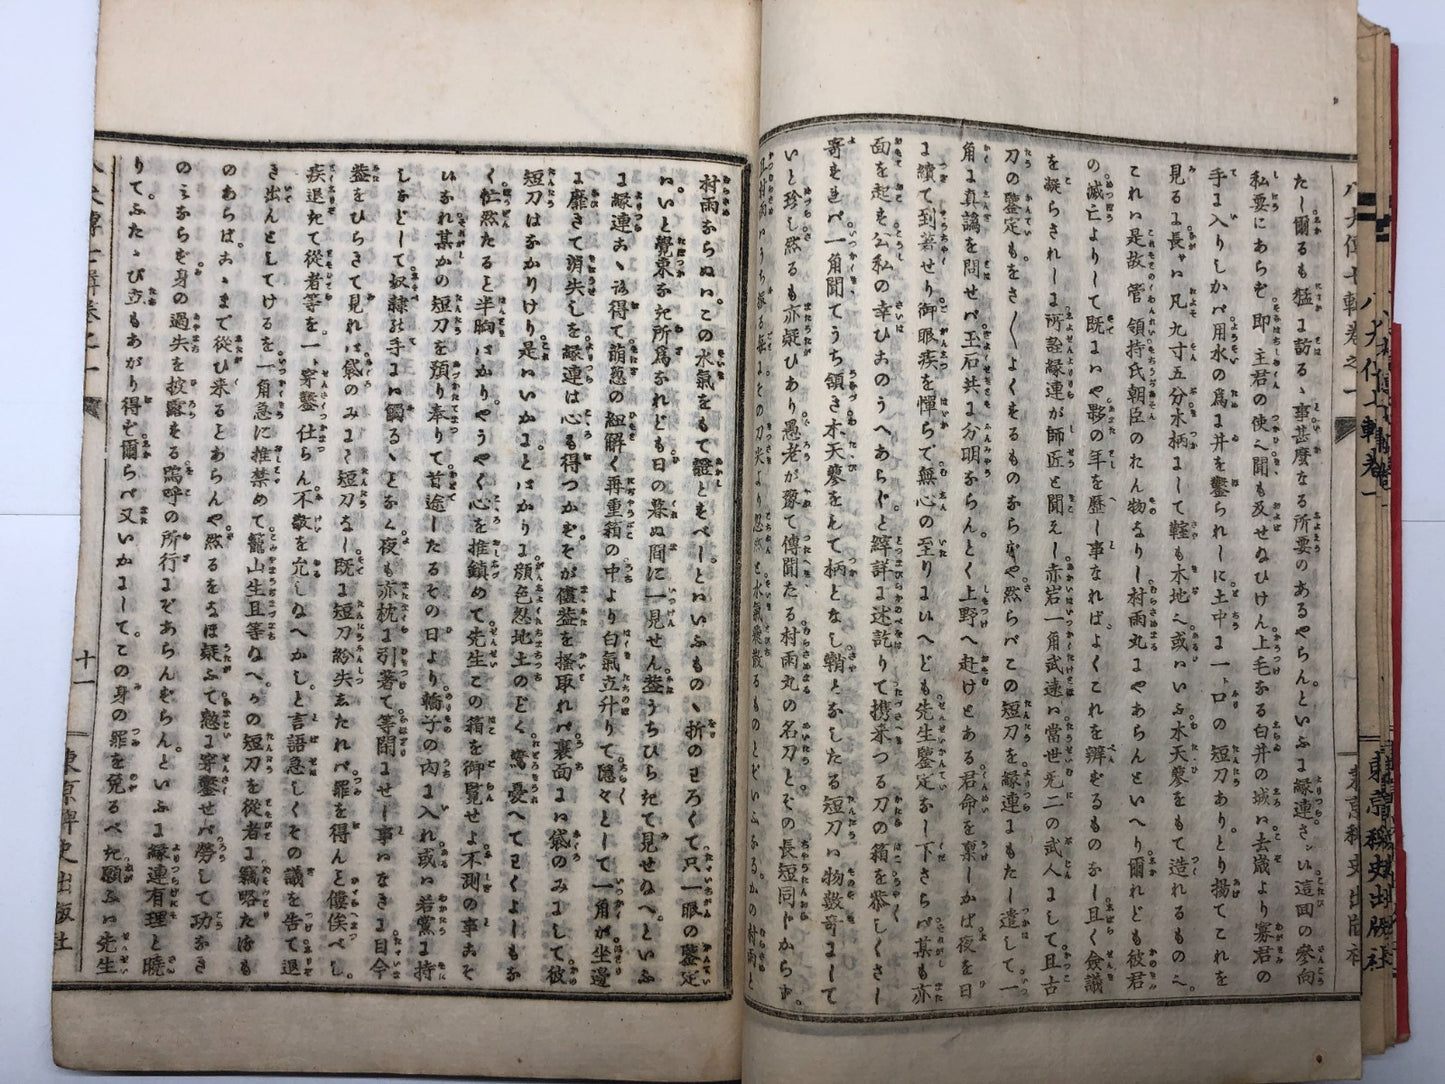 八犬傳七輯卷之一
東京稗史出版社
たし爾るも猛に訪るゝ事甚麼なる所要のあるやらんといふに縁連さン候這回の參向
私要にあらず即主君の使へ聞も及せぬひけん上毛なる白井の城い去歳より寡君の
手に入りしかバ用水の爲に井を鑿られしに土中に一ト口の短刀ありとり揚てこれを
見るに長サい凡九寸五分木柄にして鞘も木地へ或いいふ木天蓼をもて造れるものへ
これい是故管領持氏朝臣のたん物なりし村雨丸にやあらんといへり爾れども彼君
の滅亡よりして既にいや夥の年を歴し事なればよくこれを辨ずるものなし且く僉議
を凝らされしに所詮縁連が師匠と聞えし赤岩一角武遠い當世无二の武人にして且古
刀の鑒定もをさ〳〵よくするものならずや然らバこの短刀を縁連にもたし遣して一
角に眞譌を問せバ玉石共に分明ならんとく上野へ赴けとある君命を稟しかば夜を日
に續て到着せり御眼疾を憚らで無心の至りにいへども先生鑒定なし下さらバ某も亦
面を起す公私の幸ひこのうへあらじと緯詳に述訖りて携来つる刀の箱を恭しくさし
寄すれバ一角聞てうち領き木天蓼をもて柄となし鞘となしたる短刀い物數竒にして
いと珍し然るも亦疑ひあり愚老が豫て傳聞たる村雨丸の名刀とその長短同じからず
且村雨いうち振る毎にその刀尖より忽然と水氣發散るものとぞいふなるかの村雨と
村雨ならぬいこの水氣をもて證とすべしといふもの折のわろくて只一眼の鑒定
いと覺束な記所爲なれども日の暮ぬ間に一見せん葢うちひらきて見せぬへといふ
に縁連こゝろ得て萠葱の紐解く再重箱の中より白氣立升りて隱々として一角が坐邊
に靡きて消失しを縁連は心も得つかずそが儘葢を掻取れバ裏面にい袋のみにして彼
短刀はなかりけり是いいかにとばかり顔色忍地土のごとく驚き憂へてわくよしもな
く茫然たると半晌ばかりやうやく心を推鎭めて先生この箱を御覧せよ不測の事こそ
いなれ某かの短刀を預り奉りて首途したるその日より轎子の内に入れ或い若黨に持
しなどして奴隷の手にい觸るゝとなく夜も亦枕に引著て等閑にせし事いなきに目今
葢をひらきて見れば袋のみにて短刀なし既に短刀紛失したれバ罪を得んと儘俟べし
疾退きて從者等を一ト穿鑿仕らん不敬を允しぬへかしと言語急しくその議を告て退
き出んとしてけるを一角急に推禁めて籠山生且等ぬへその短刀を從者に竊略たるも
のあらばこゝまで從ひ来るとあらんや然るをなほ疑ふて憖に穿鑿せバ勞して功なき
のみならず身の過失を披露する嗚呼の所行にぞあらんずらんといふに縁連有理と曉
りてふたゝび立もあがり得ず爾らバ又いかにしてこの身の罪を免るべき願ふい先生
八犬傳七輯卷之一
十一
東京稗史出版社